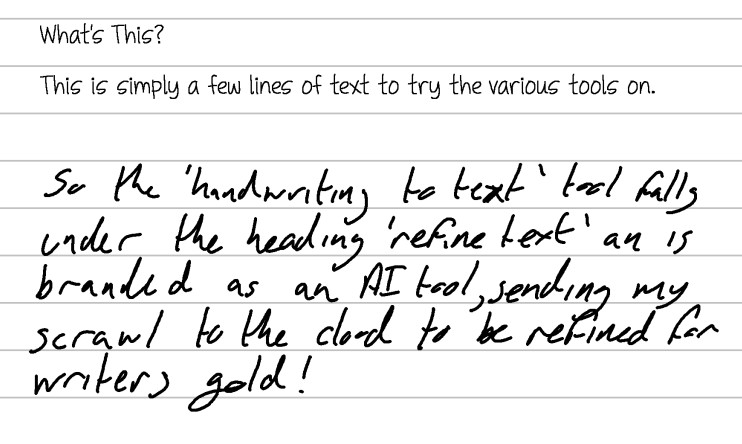 What's This?
This is simply a few lines of text to try the various tools on.
So the 'handwriting to text' tool falls
under the heading 'refine text' an is
branded as an AI tool, sending my
scrawl to the cloud to be refined for
writers gold!